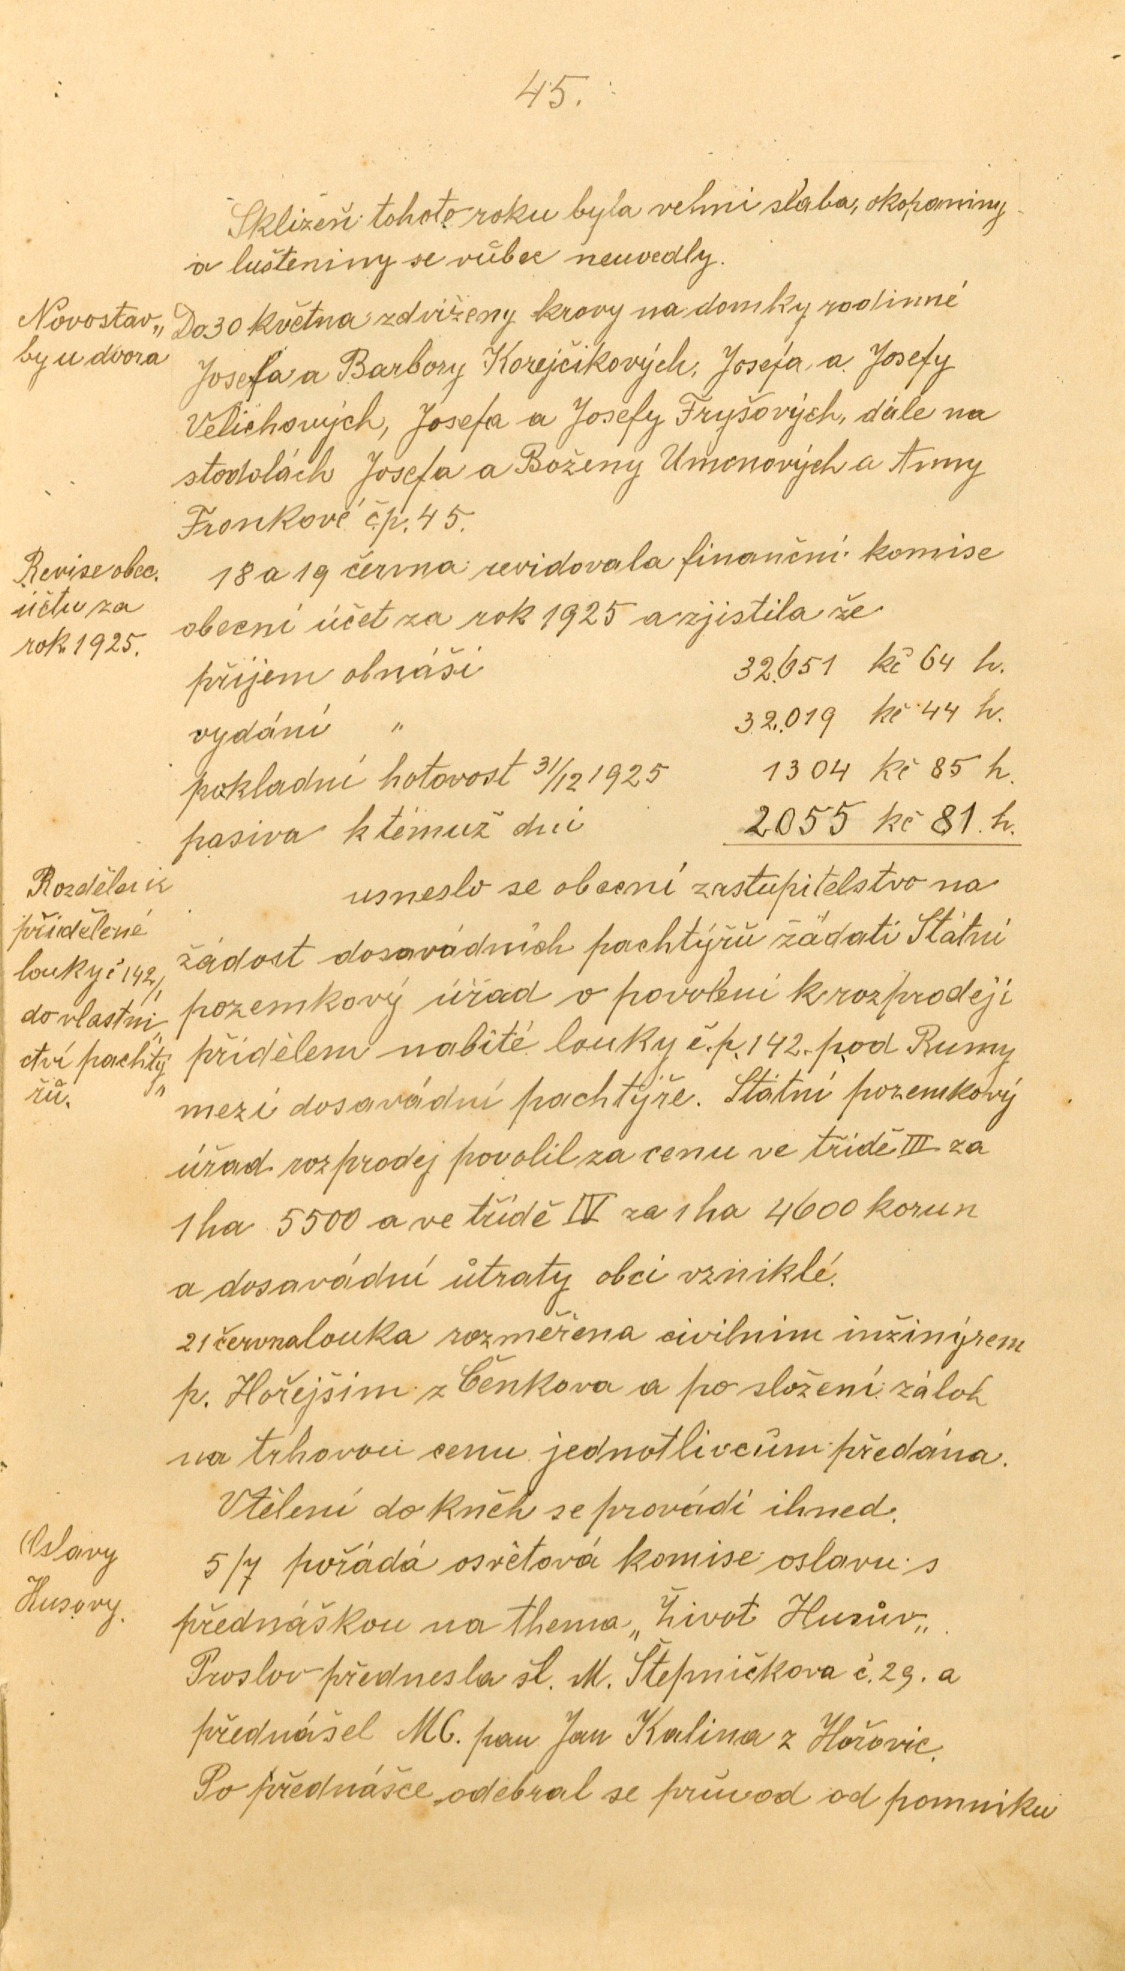 45.
Sklizeň tohoto roku byla velmi slaba, okopaniny
a luštěniny se vůbec neuvedly.
Novostav„
by u dvora
Do 30 května zdviženy krovy na domky rodinné
Josefa a Barbory Korejčikových, Josefa a Josefy
Velichových, Josefa a Josefy Fryšových, dále na
stodolách Josefa a Boženy Umenových a Anny
Fronkové č.p. 45.
Revise obec.
účtu za
rok 1925.
18 a 19 června revidovala finanční komise
obecní účet za rok 1925 a zjistila že
příjem obnáší 32.651 kč 64 h.
vydání " 32.019 kč 44 h.
pokladní hotovost 31/12 1925 1304 kč 85 h.
pasiva k témuž dni 2055 kč 81 h.
přidělené
louky č 142
do vlastni„
ctví pachtý„
řů.
usneslo se obecní zastupitelstvo na
žádost dosavádních pachtýřů žádati Státní
pozemkový úřad o povolení k rozprodeji
přídělem nabité louky č.p. 142. pod Rumy
mezi dosavádní pachtýře. Státní pozemkový
úřad rozprodej povolil za cenu ve třídě III za
1 ha 5500 a ve třídě IV za 1 ha 4600 korun
a dosavádní útraty obci vzniklé.
21 června louka rozměřena civilním inžinýrem
p. Hořejším z Čenkova a po složení záloh
na trhovou cenu jednotlivcům předána.
Vtělení do kněh se provádí ihned.
Oslavy
Husovy.
5/7 pořádá osvětová komise oslavu s
přednáškou na thema „Život Husův„.
Proslov přednesla sl. M. Štepničkova č. 29. a
přednášel MC. pan Jan Kalina z Hořovic.
Po přednášce odebral se průvod od pomníku